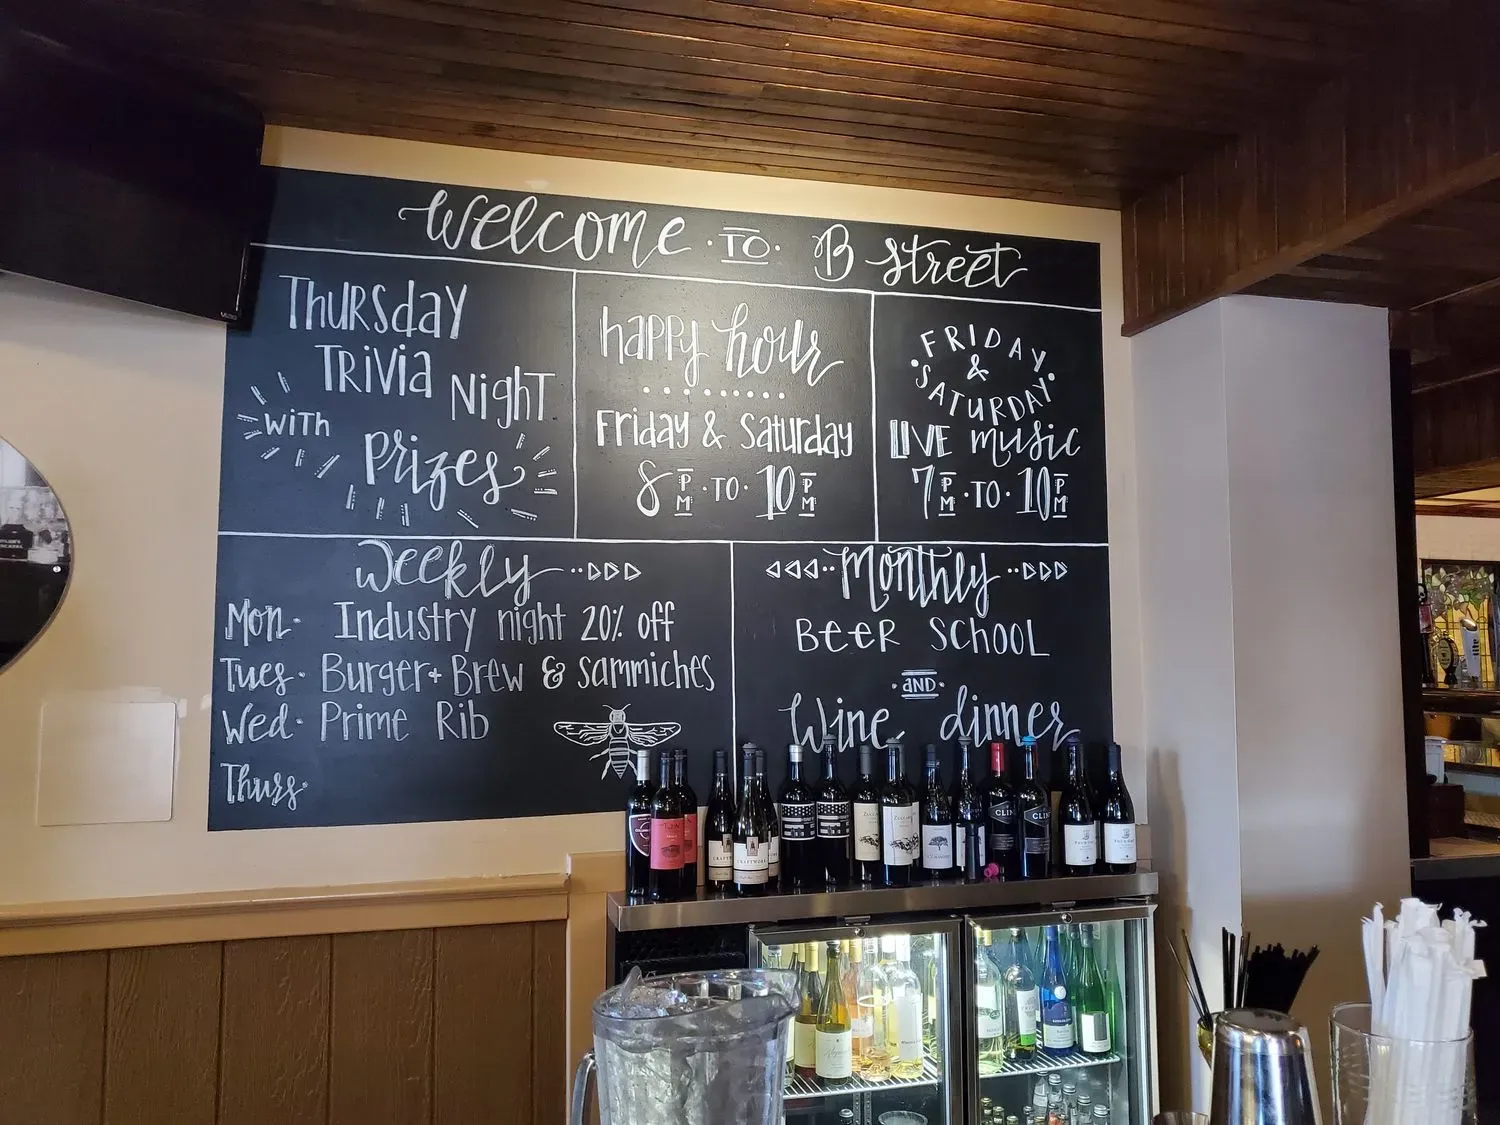 Welcome · TO · B Street
Thursday
Trivia Night
with
Prizes
happy hour
Friday & Saturday
8 PM · TO · 10 PM
FRIDAY
&
SATURDAY
LIVE music
7 PM · TO · 10 PM
Weekly
Mon. Industry night 20% off
Tues. Burger + Brew & sammiches
Wed. Prime Rib
Thurs.
Monthly
BEER SCHOOL
AND
Wine dinner
CLINE